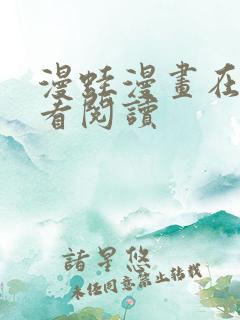 漫蛙漫畫在
看閱讀
諸星悠
未经同意禁止转载